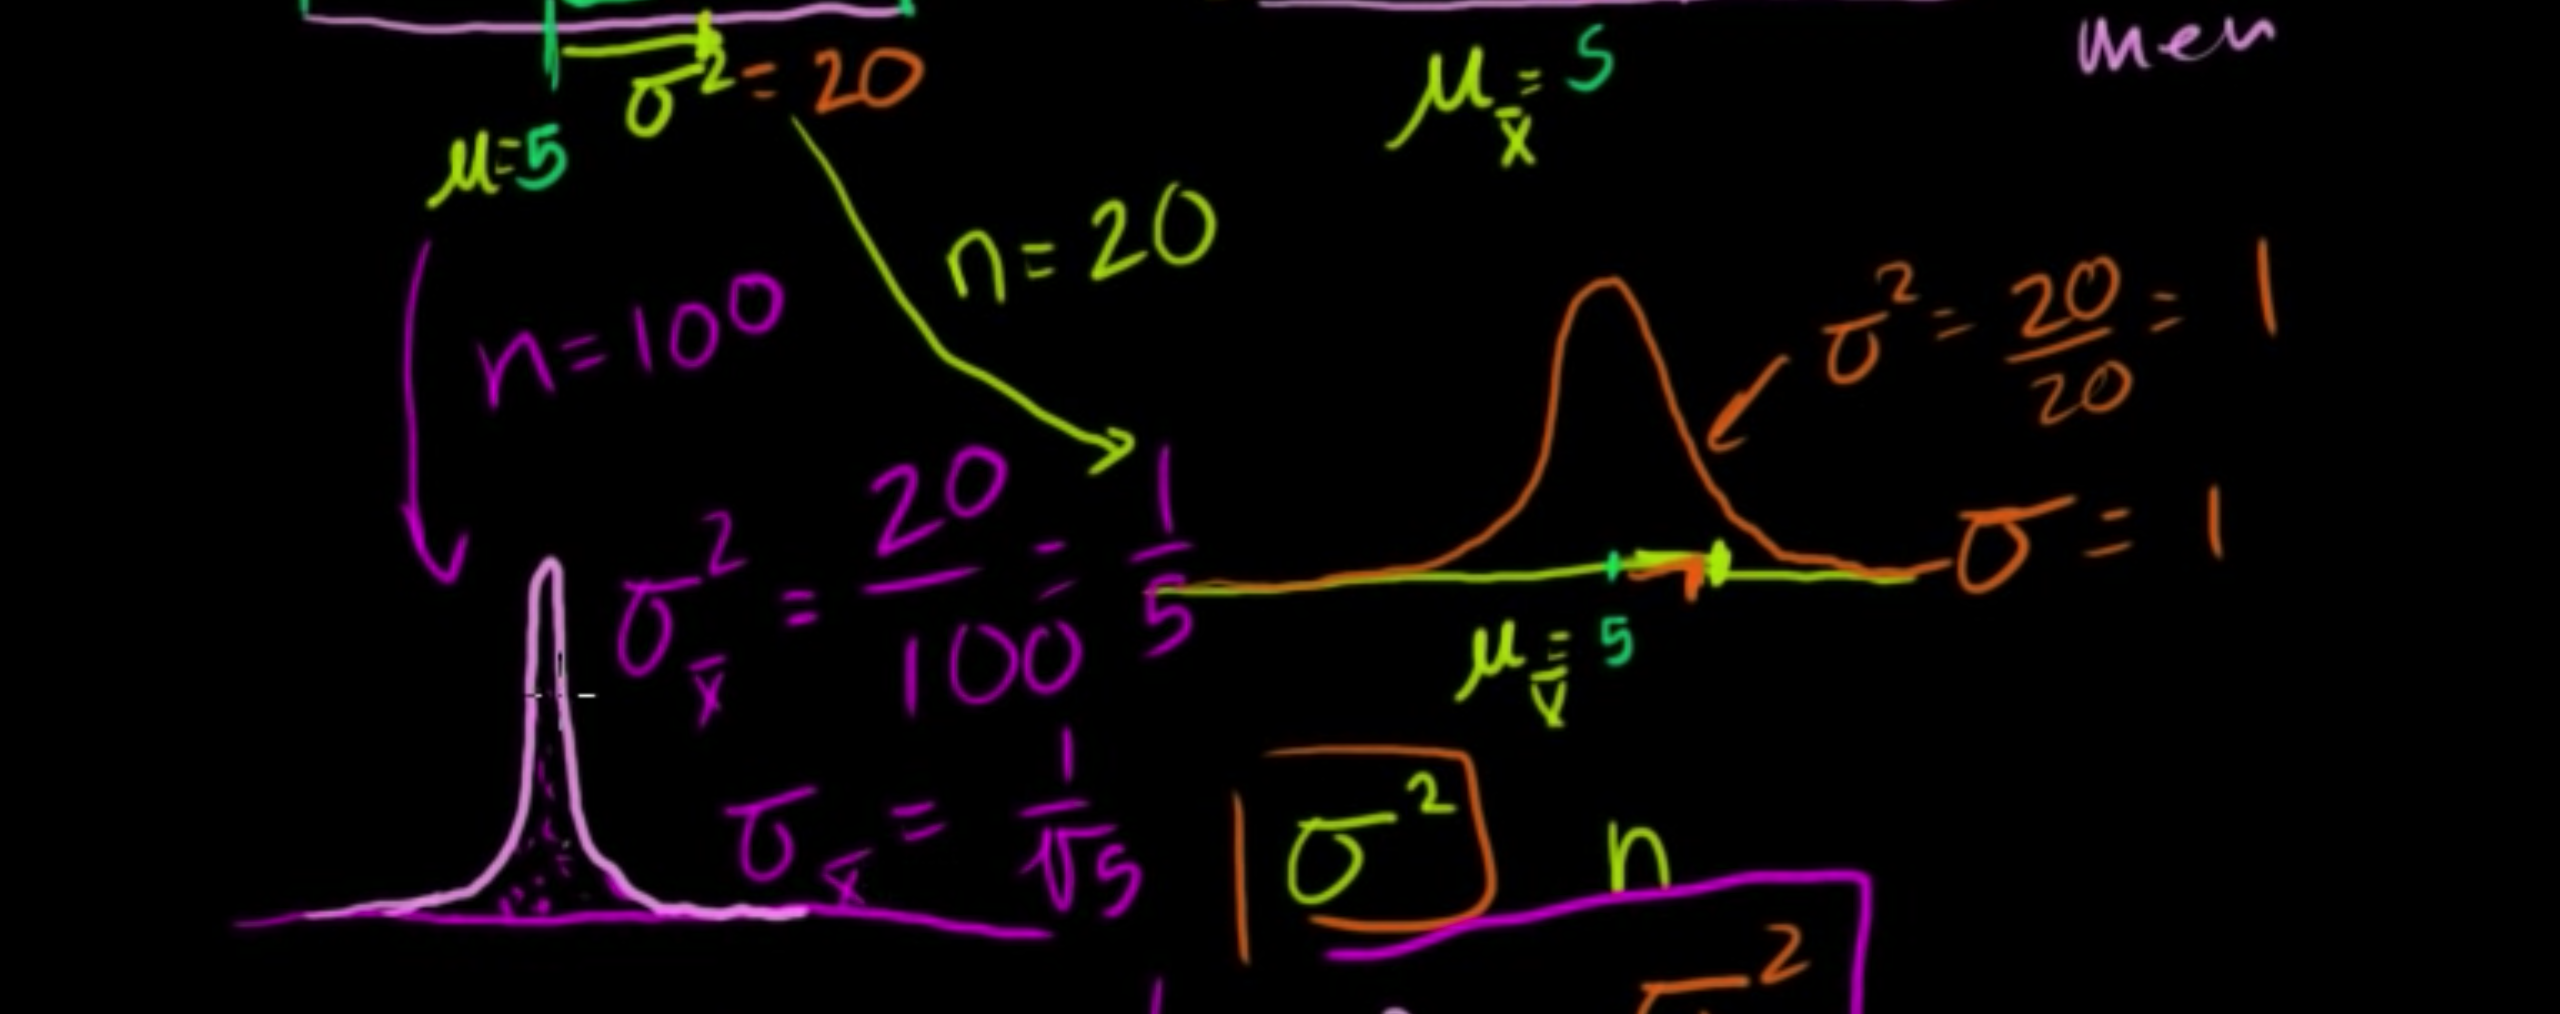 σ² = 20
μ = 5
μ_x̄ = 5
men
n = 20
n = 100
σ² = 20/20 = 1
σ²_x̄ = 20/100 = 1/5
σ = 1
μ_x̄ = 5
σ_x̄ = 1/√5
σ²
n
σ²